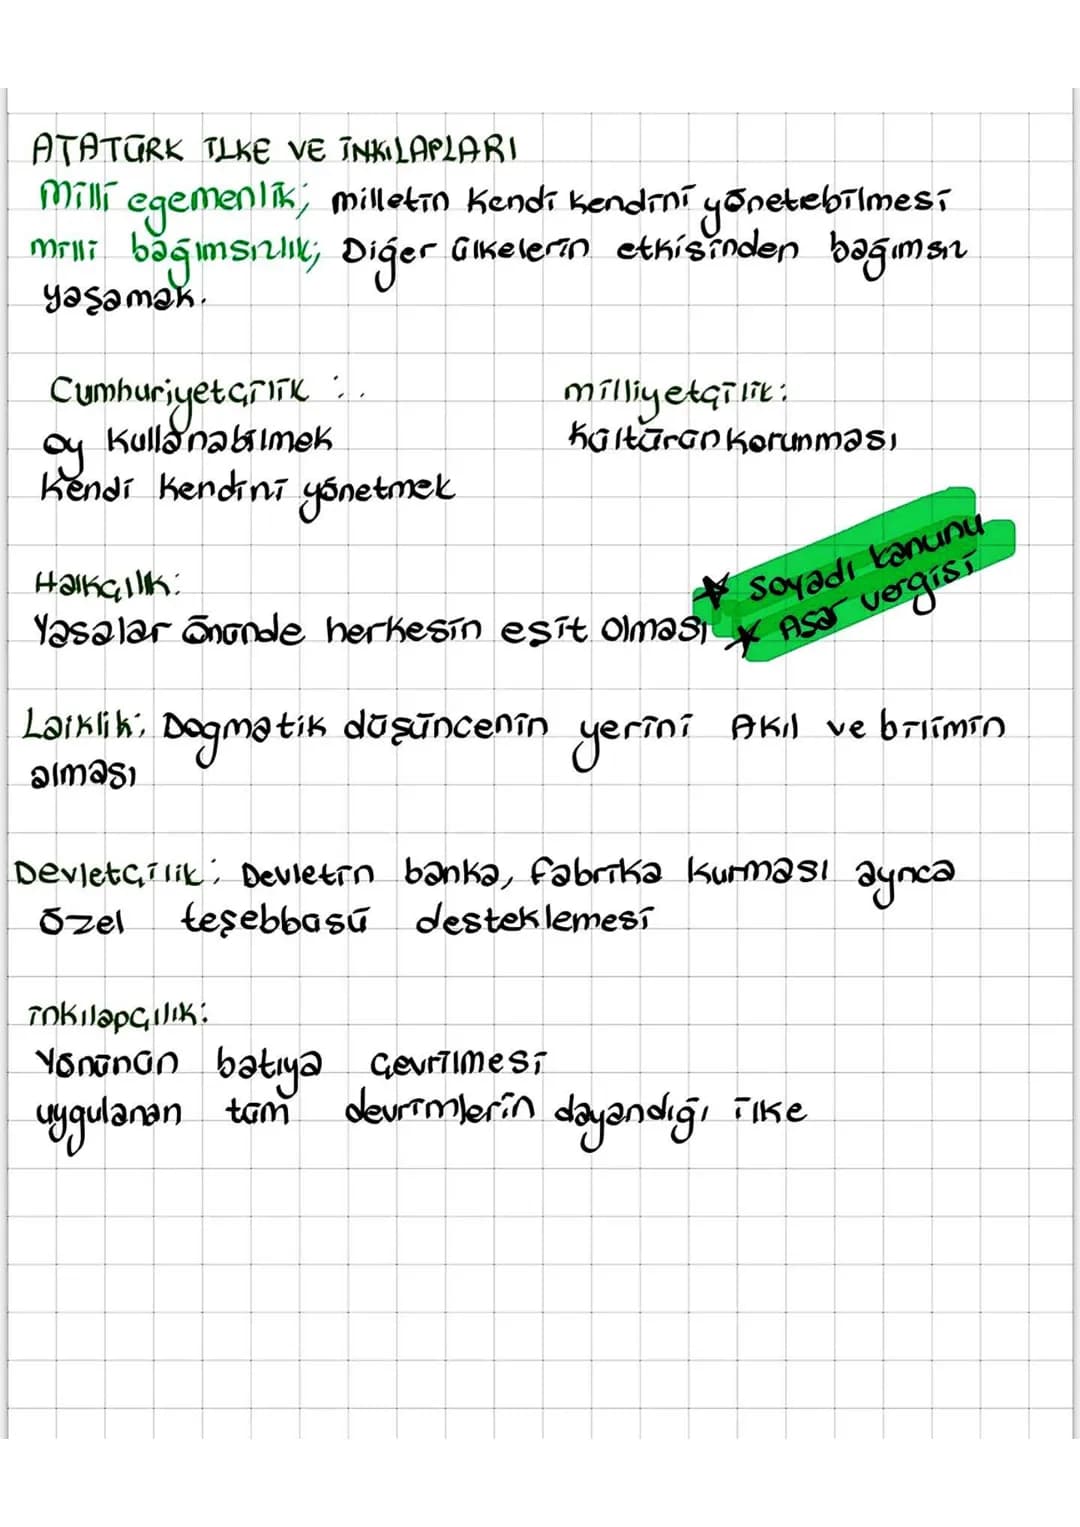 ATATÜRK İLKE VE İNKILAPLARI
Milli egemenlik; milletin kendi kendini yönetebilmesi
milli bağımsızlık; Diğer ülkelerin etkisinden bağımsız
yaşamak.
Cumhuriyetçilik :..
oy kullanabilmek
kendi kendini yönetmek
milliyetçilik:
kültürün korunması
Halkçılık:
Yasalar önünde herkesin eşit olması
* Soyadı kanunu
* Aşar vergisi
Laiklik; Dogmatik düşüncenin yerini Akıl ve bilimin
alması
Devletçilik; Devletin banka, fabrika kurması ayrıca
özel teşebbüsü desteklemesi
inkılapçılık:
Yönünün batıya çevrilmesi
uygulanan tüm devrimlerin dayandığı ilke